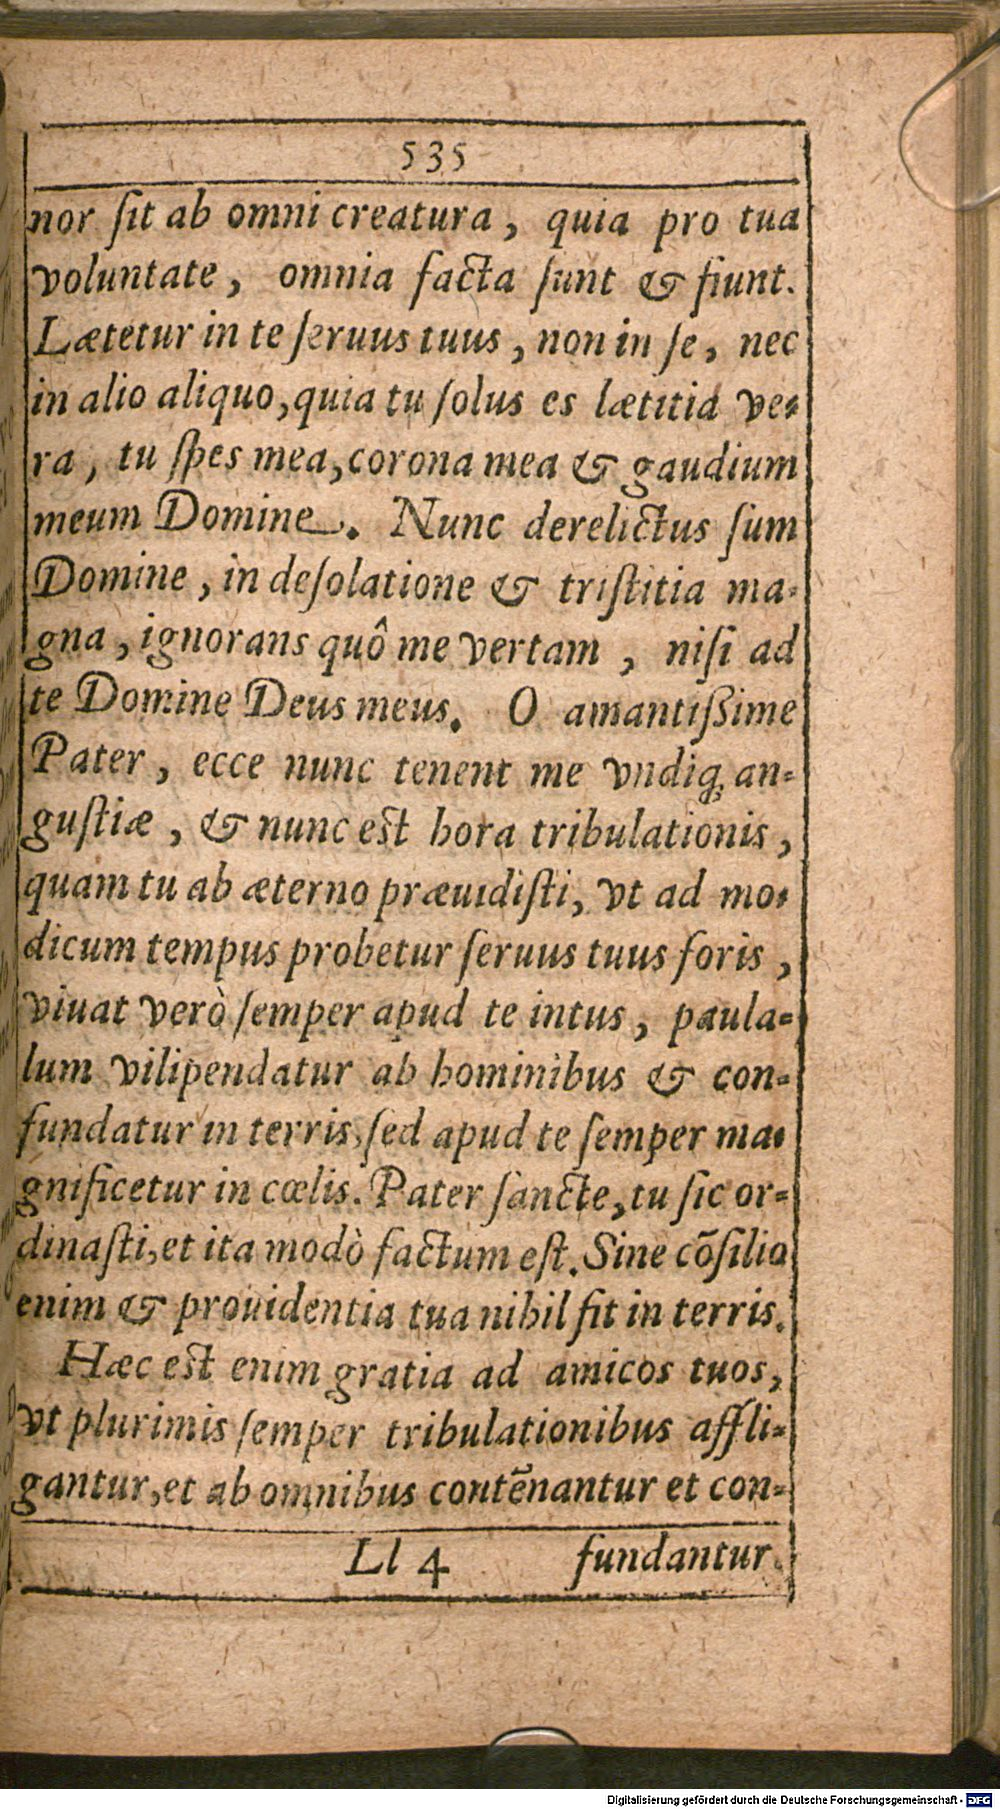 535
nor ſit ab omni creatura, quia pro tua
voluntate, omnia facta ſunt & fiunt.
Lætetur in te ſeruus tuus, non in ſe, nec
in alio aliquo, quia tu ſolus es lætitia ve-
ra, tu ſpes mea, corona mea & gaudium
meum Domine. Nunc derelictus ſum
Domine, in deſolatione & triſtitia ma-
gna, ignorans quô me vertam, niſi ad
te Domine Deus meus. O amantiſſime
Pater, ecce nunc tenent me vndiq; an-
guſtiæ, & nunc est hora tribulationis,
quam tu ab æterno præuidiſti, vt ad mo-
dicum tempus probetur ſeruus tuus foris,
viuat verò ſemper apud te intus, paula-
lum vilipendatur ab hominibus & con-
fundatur in terris, ſed apud te ſemper ma-
gnificetur in cœlis. Pater ſancte, tu ſic or-
dinaſti, et ita modò factum eſt. Sine cōſilio
enim & prouidentia tua nihil fit in terris.
Hæc est enim gratia ad amicos tuos,
vt plurimis ſemper tribulationibus affli-
gantur, et ab omnibus contēnantur et con-
Ll 4 fundantur.
Digitalisierung gefördert durch die Deutsche Forschungsgemeinschaft - DFG